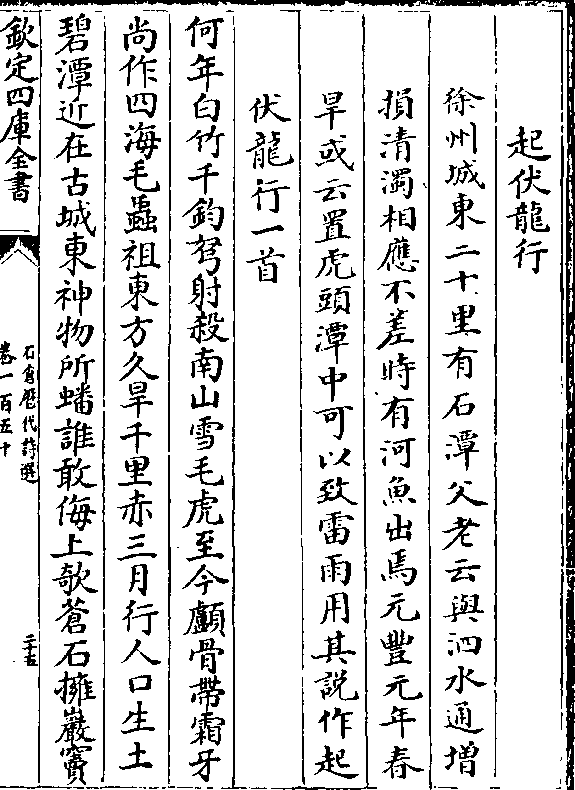 起伏龍行
徐州城東二十里有石潭父老云與泗水通増
損清濁相應不差時有河魚出焉元豐元年春
旱或云置虎頭潭中可以致雷雨用其說作起
伏龍行一首
何年白竹千鈞弩射殺南山雪毛虎至今顱骨帶霜牙
尚作四海毛蟲祖東方久旱千里赤三月行人口生土
碧潭近在古城東神物所蟠誰敢侮上欹蒼石擁巖竇
欽定四庫全書
石倉歷代詩選
卷一百五十
二十五